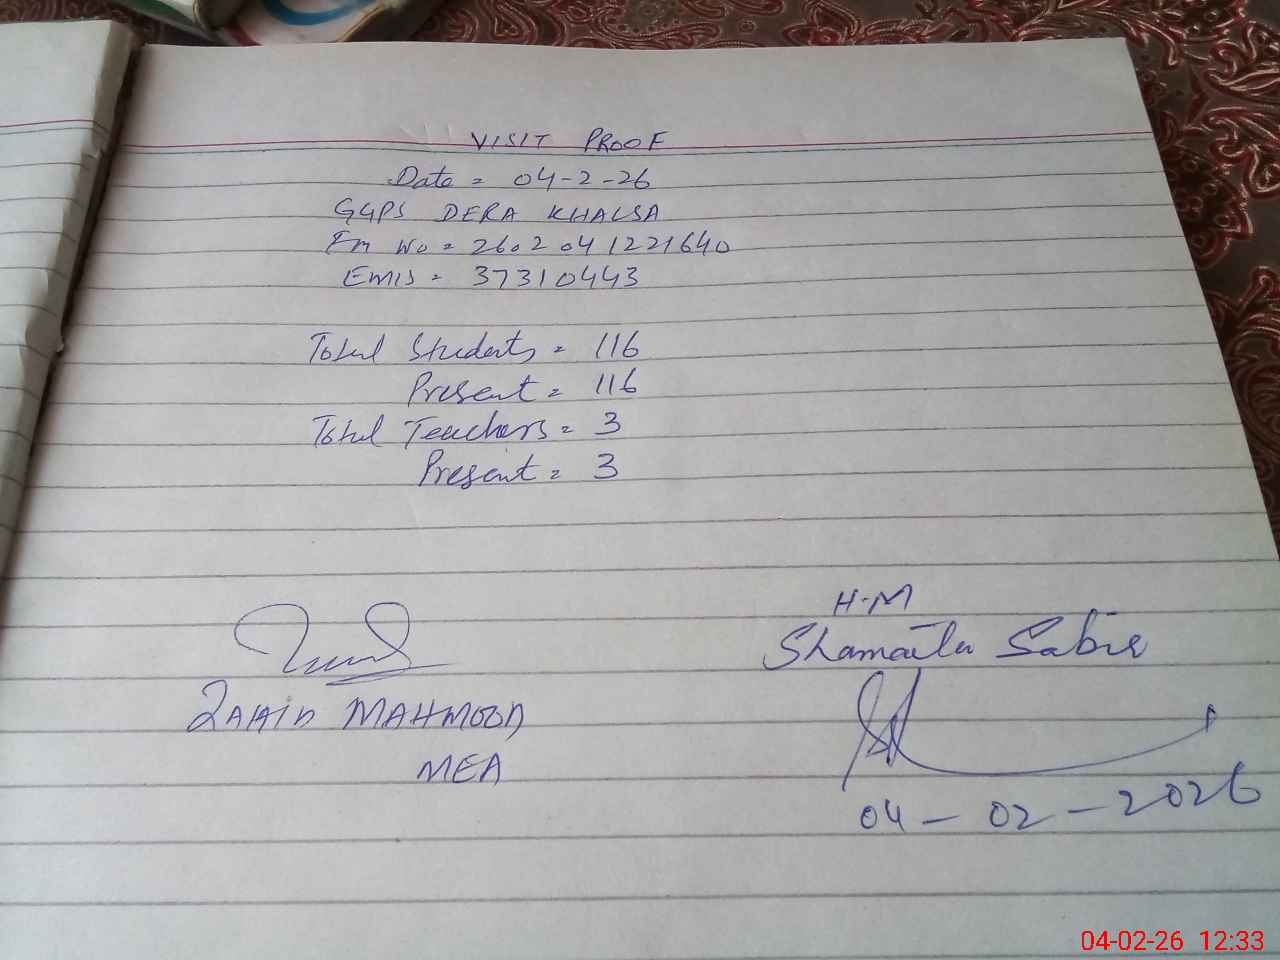 VISIT PROOF
Date = 04-2-26
GGPS DERA KHALSA
Em No = 2602041221640
EMIS = 37310443
Total Students = 116
Present = 116
Total Teachers = 3
Present = 3
H.M
Shamaila Sabir
MAHMOOD
MEA
04-02-2026
04-02-26 12:33